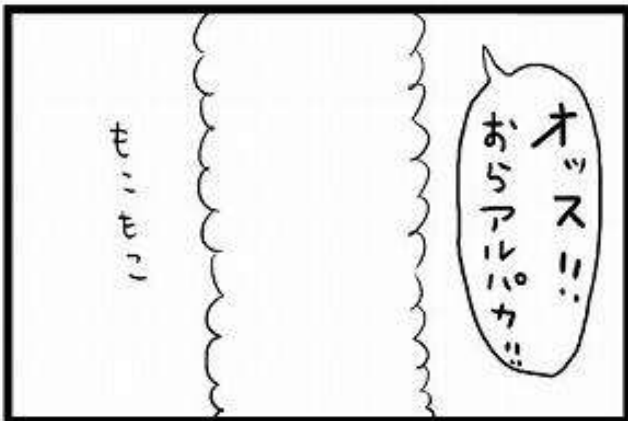 オッス!!
おらアルパカ!!
もこもこ